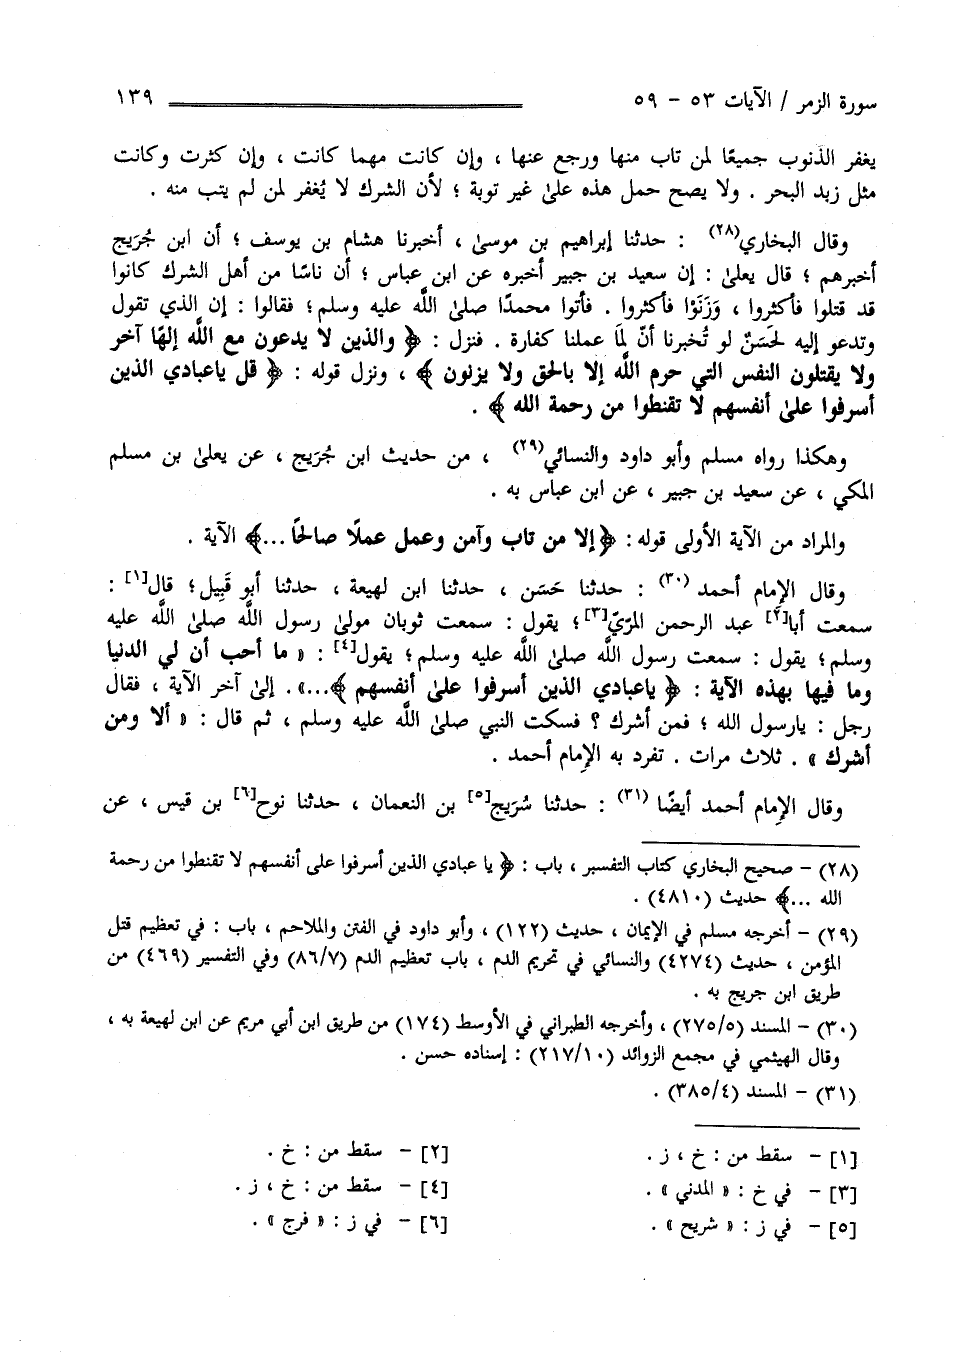 سورة الزمر / الآيات ٥٣ - ٥٩ ١٣٩
يغفر الذنوب جميعًا لمن تاب منها ورجع عنها ، وإن كانت مهما كانت ، وإن كثرت وكانت
مثل زبد البحر . ولا يصح حمل هذه علىٰ غير توبة ؛ لأن الشرك لا يُغفر لمن لم يتب منه .
وقال البخاري(٢٨) : حدثنا إبراهيم بن موسىٰ ، أخبرنا هشام بن يوسف ؛ أن ابن جُرَيج
أخبرهم ؛ قال يعلىٰ : إن سعيد بن جبير أخبره عن ابن عباس ؛ أن ناسًا من أهل الشرك كانوا
قد قتلوا فأكثروا ، وَزَنَوْا فأكثروا . فأتوا محمدًا صلىٰ اللَّه عليه وسلم؛ فقالوا : إن الذي تقول
وتدعو إليه لحَسَنٌ لو تُخبرنا أنّ لمَا عملنا كفارة . فنزل : ﴿ والذين لا يدعون مع اللَّه إلهًا آخر
ولا يقتلون النفس التي حرم اللَّه إلا بالحق ولا يزنون ﴾ ، ونزل قوله : ﴿ قل ياعبادي الذين
أسرفوا علىٰ أنفسهم لا تقنطوا من رحمة الله ﴾ .
وهكذا رواه مسلم وأبو داود والنسائي(٢٩) ، من حديث ابن جُرَيج ، عن يعلىٰ بن مسلم
المكي ، عن سعيد بن جبير ، عن ابن عباس به .
والمراد من الآية الأولى قوله : ﴿إلا من تاب وآمن وعمل عملًا صالحًا ...﴾ الآية .
وقال الإمام أحمد (٣٠) : حدثنا حَسَن ، حدثنا ابن لهيعة ، حدثنا أبو قَبِيل؛ قال[١] :
سمعت أبا[٢] عبد الرحمن المرّيّ[٣]؛ يقول : سمعت ثوبان مولىٰ رسول اللَّه صلىٰ اللَّه عليه
وسلم؛ يقول : سمعت رسول اللَّه صلىٰ اللَّه عليه وسلم؛ يقول[٤] : « ما أحب أن لي الدنيا
وما فيها بهذه الآية : ﴿ ياعبادي الذين أسرفوا علىٰ أنفسهم ﴾...». إلىٰ آخر الآية ، فقال
رجل : يارسول الله ؛ فمن أشرك ؟ فسكت النبي صلىٰ اللَّه عليه وسلم ، ثم قال : « ألا ومن
أشرك » . ثلاث مرات . تفرد به الإمام أحمد .
وقال الإمام أحمد أيضًا (٣١) : حدثنا سُرَيج[٥] بن النعمان ، حدثنا نوح[٦] بن قيس ، عن
(٢٨) - صحيح البخاري كتاب التفسير ، باب : ﴿ يا عبادي الذين أسرفوا على أنفسهم لا تقنطوا من رحمة
الله ...﴾ حديث (٤٨١٠) .
(٢٩) - أخرجه مسلم في الإيمان ، حديث (١٢٢) ، وأبو داود في الفتن والملاحم ، باب : في تعظيم قتل
المؤمن ، حديث (٤٢٧٤) والنسائي في تحريم الدم ، باب تعظيم الدم (٨٦/٧) وفي التفسير (٤٦٩) من
طريق ابن جريج به .
(٣٠) - المسند (٢٧٥/٥) ، وأخرجه الطبراني في الأوسط (١٧٤) من طريق ابن أبي مريم عن ابن لهيعة به ،
وقال الهيثمي في مجمع الزوائد (٢١٧/١٠) : إسناده حسن .
(٣١) - المسند (٣٨٥/٤) .
[١] - سقط من : خ ، ز . [٢] - سقط من : خ .
[٣] - في خ : « المدني » . [٤] - سقط من : خ ، ز .
[٥] - في ز : « شريح » . [٦] - في ز : « فرج » .